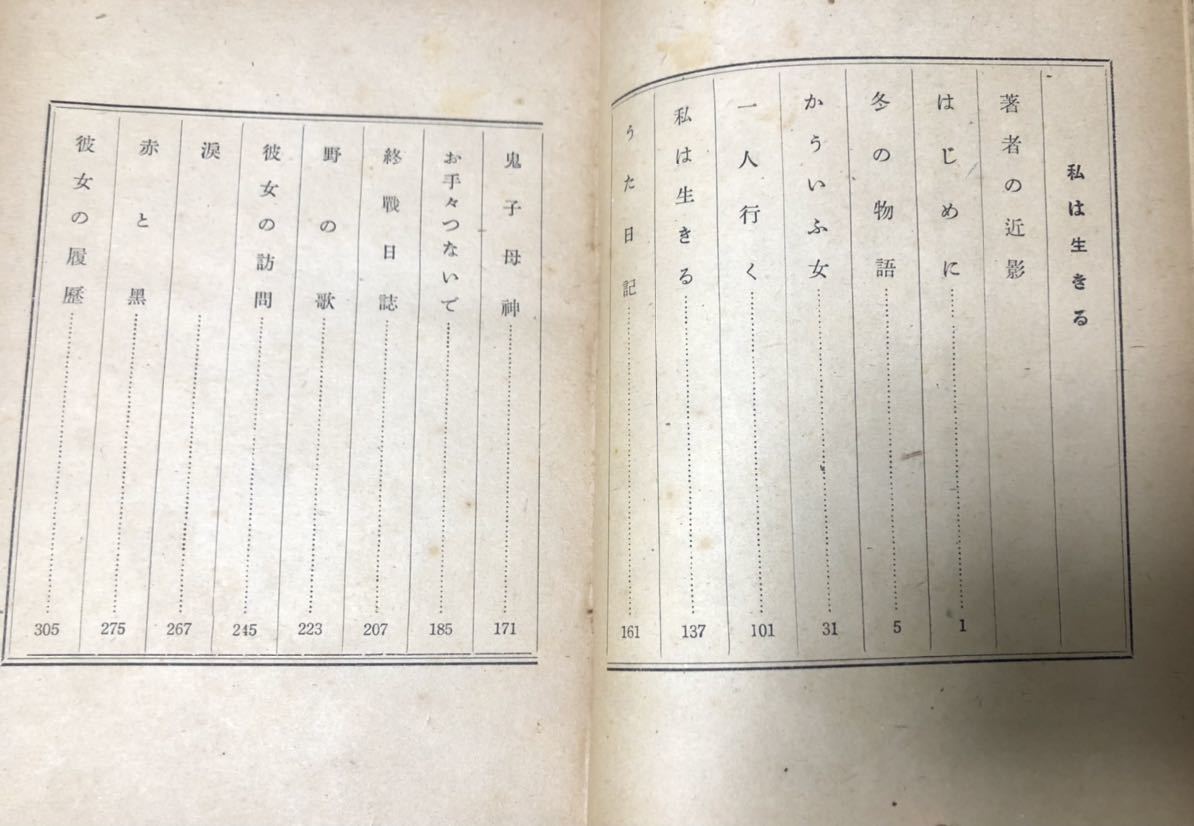 私は生きる
著者の近影
はじめに 1
冬の物語 5
かういふ女 31
一人行く 101
私は生きる 137
うた日記 161
鬼子母神 171
お手々つないで 185
終戰日誌 207
野の歌 223
彼女の訪問 245
涙 267
赤と黒 275
彼女の履歷 305